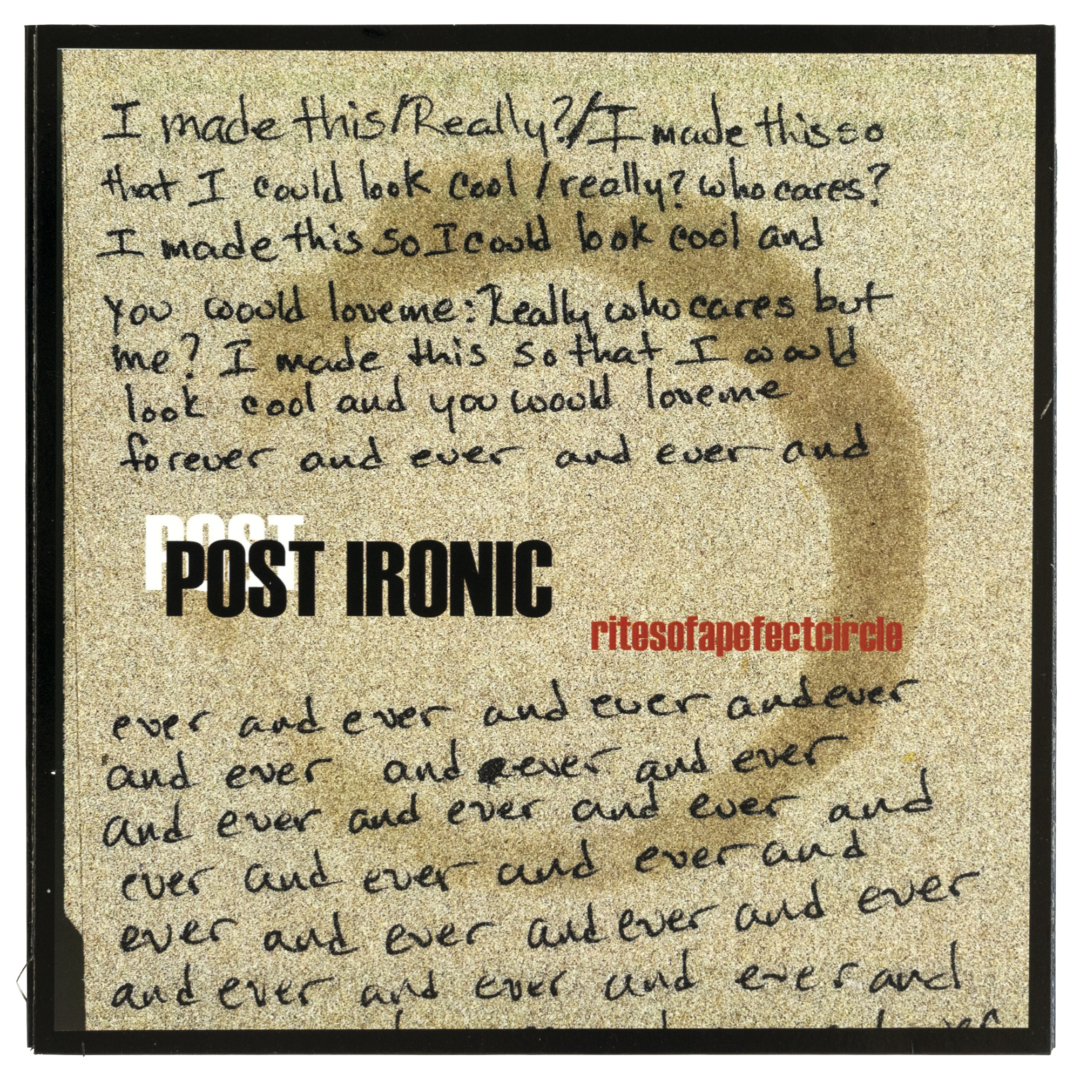 I made this/Really?/I made this so
that I could look cool / really? who cares?
I made this so I could look cool and
you would love me: Really who cares but
me? I made this so that I would
look cool and you would love me
forever and ever and ever and
POST
POST IRONIC
ritesofapefectcircle
ever and ever and ever and ever
and ever and ever and ever
and ever and ever and ever and
ever and ever and ever and
ever and ever and ever and ever
and ever and ever and ever and